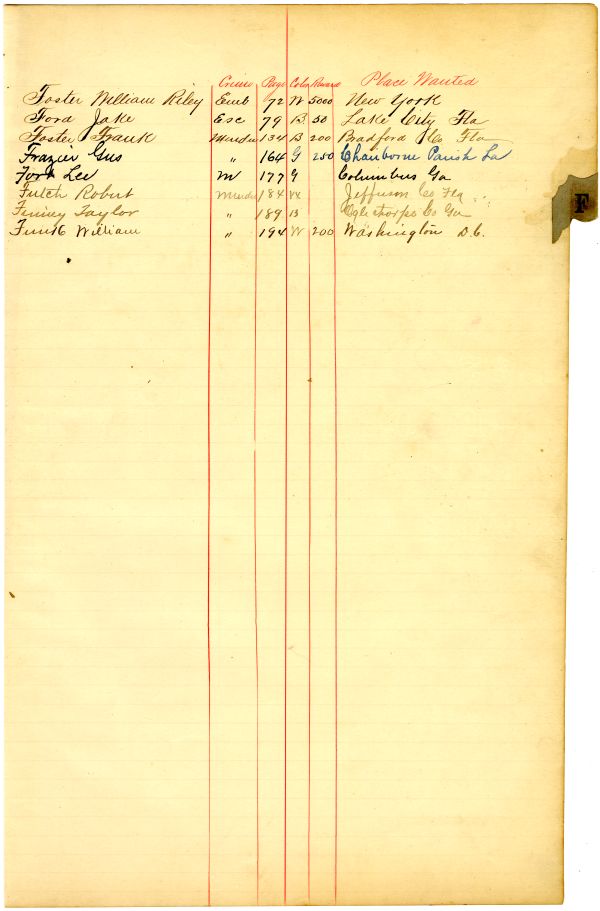 Crime Page Color Reward Place Wanted
Foster William Riley Emb 72 W 5000 New York
Ford Jake Esc 79 B 50 Lake City Fla
Foster, Frank Murder 134 B 200 Bradford Co Fla
Frazier Gus " 164 G 250 Chaiborne Parish La
Ford Lee M 177 G Columbus Ga
Futch Robert Murder 184 W Jefferson Co Fla
Finny Taylor " 189 B Oglethorpe Co Ga
William " 194 W 200 Washington D.C.
F